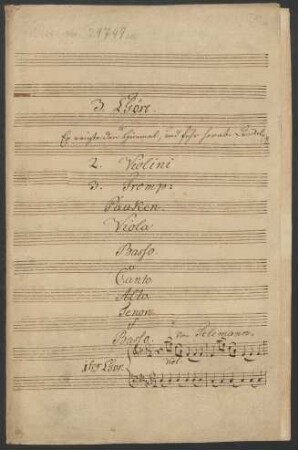 3 Chöre.
Er neigte den Himmel, und fuhr herab
2. Violini
3. Tromp:
Pauken.
Viola
Basso.
Canto
Alto
Tenore
Basso.
von Telemann.
1ster Chor.
viol.